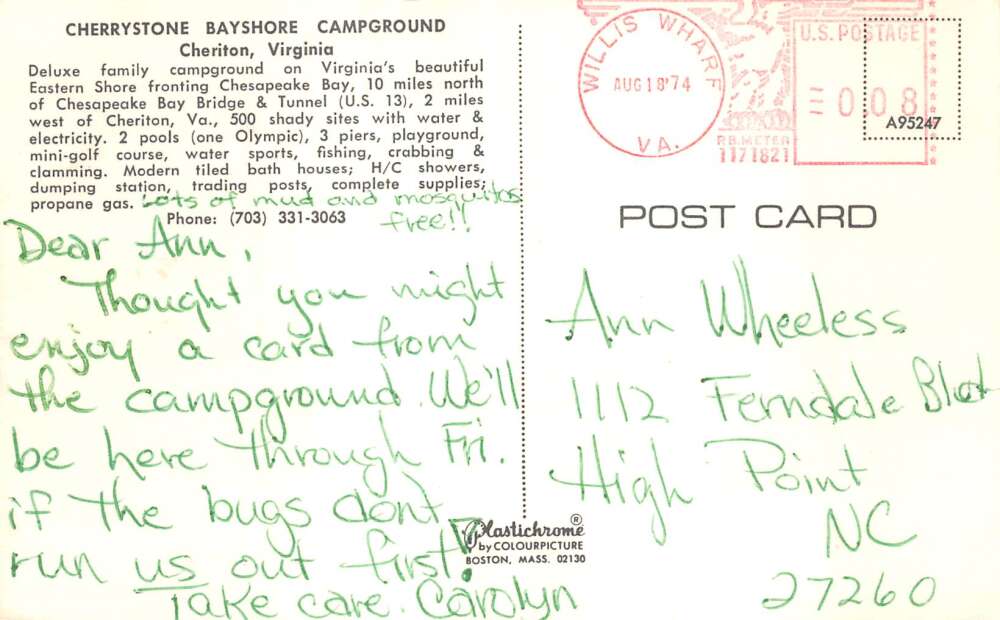 CHERRYSTONE BAYSHORE CAMPGROUND
Cheriton, Virginia
Deluxe family campground on Virginia's beautiful
Eastern Shore fronting Chesapeake Bay, 10 miles north
of Chesapeake Bay Bridge & Tunnel (U.S. 13), 2 miles
west of Cheriton, Va., 500 shady sites with water &
electricity. 2 pools (one Olympic), 3 piers, playground,
mini-golf course, water sports, fishing, crabbing &
clamming. Modern tiled bath houses; H/C showers,
dumping station, trading posts, complete supplies;
propane gas. Lots of mud and mosquitos
free!!
Phone: (703) 331-3063
Dear Ann,
Thought you might
enjoy a card from
the campground. We'll
be here through Fri.
if the bugs dont
run us out first!
Take care. Carolyn
WILLIS WHARF
AUG 18 '74
VA.
U.S. POSTAGE
= 0.08
P.B. METER
1171821
A95247
POST CARD
Ann Wheeless
1112 Ferndale Blvd
High Point
NC
27260
Plastichrome ®
by COLOURPICTURE
BOSTON, MASS. 02130